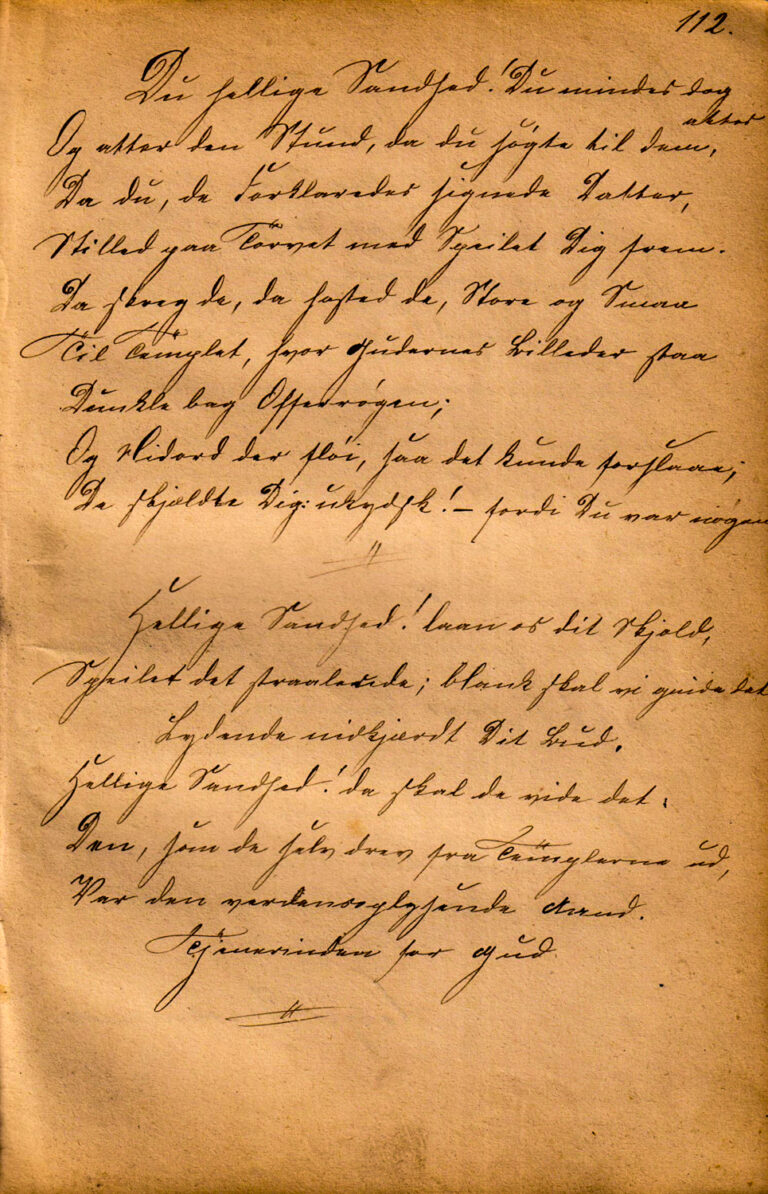 112.
Du hellige Sandhed! Du mindes dog
atter
Og atter den Stund, da du søgte til dem,
Da du, de Forklaredes signede Datter,
Stilled paa Torvet med Speilet Dig frem.
Da skreg de, da hasted de, Store og Smaa
Til Templet, hvor Gudernes Billeder staa
Dunkle bag Offerrøgen;
Og Nidord der fløi, saa det kunde forslaae;
De skjældte Dig: ukydsk! — fordi Du var nøgen
Hellige Sandhed! laan os dit Skjold,
Speilet det straalende; blank skal vi gnide det
Lydende nidkjært Dit Bud.
Hellige Sandhed! da skal de vide det:
Den, som de selv drev fra Templerne ud,
Var den verdensoplysende Aand.
Tjenerinden for Gud